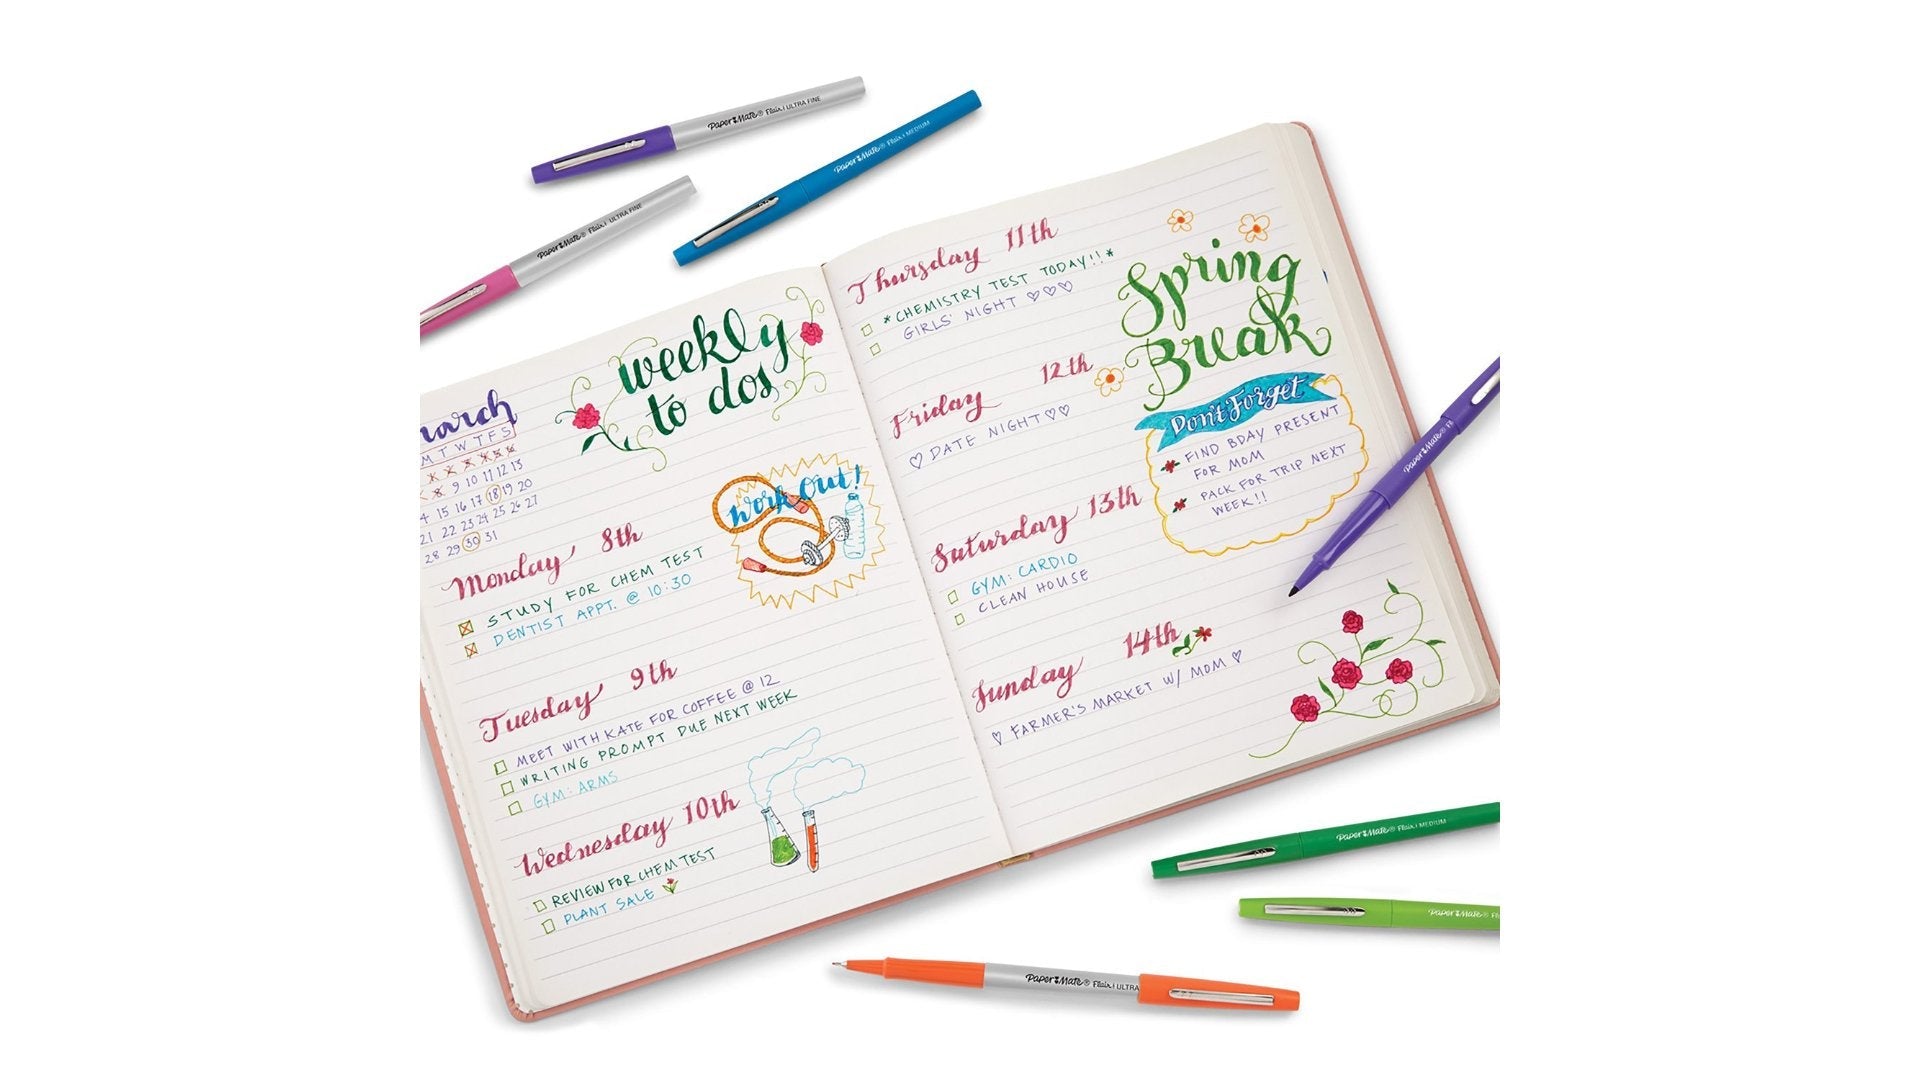 Paper Mate® Flair | ULTRA FINE
Paper Mate® Flair | MEDIUM
Paper Mate® Flair | ULTRA FINE
weekly
to dos
M T W T F S
9 10 11 12 13
15 16 17 18 19 20
21 22 23 24 25 26 27
28 29 30 31
Work Out!
Monday 8th
STUDY FOR CHEM TEST
DENTIST APPT. @ 10:30
Tuesday 9th
MEET WITH KATE FOR COFFEE @ 12
WRITING PROMPT DUE NEXT WEEK
GYM: ARMS
Wednesday 10th
REVIEW FOR CHEM TEST
PLANT SALE
Thursday 11th
*CHEMISTRY TEST TODAY!!*
GIRLS' NIGHT ♡♡♡
Friday 12th
♡ DATE NIGHT ♡♡
Saturday 13th
GYM: CARDIO
CLEAN HOUSE
Sunday 14th
♡ FARMER'S MARKET W/ MOM ♡
Spring
Break
Don't Forget
FIND BDAY PRESENT
FOR MOM
PACK FOR TRIP NEXT
WEEK!!
Paper Mate® F
Paper Mate® Flair | MEDIUM
Paper Mate® Fl
Paper Mate® Flair | ULTRA